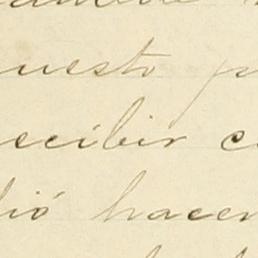 uesto p
ecibir c
dió hacer